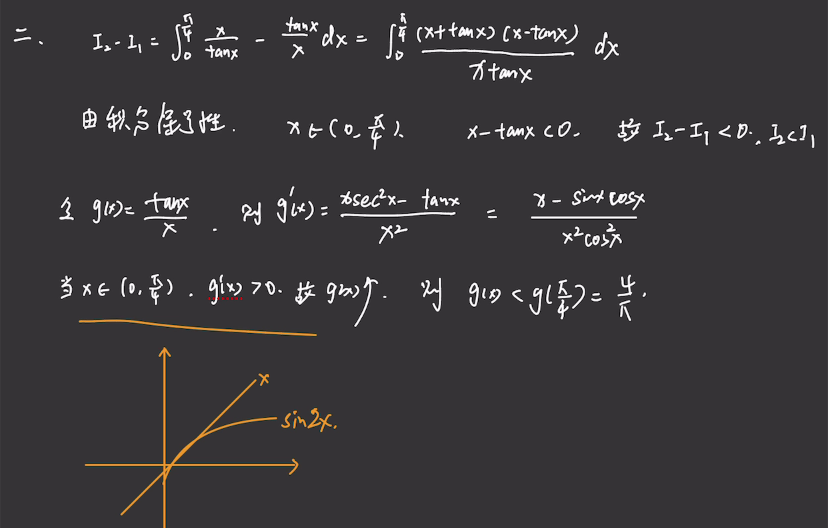 二、 I₂-I₁ = ∫₀^(π/4) x/tanx - tanx/x dx = ∫₀^(π/4) (x+tanx)(x-tanx)/(xtanx) dx
由积分保号性. x∈(0,π/4). x-tanx<0. 故 I₂-I₁<0. I₂<I₁
令 g(x)= tanx/x . 则 g'(x)= (xsec²x- tanx)/x² = (x-sinxcosx)/(x²cos²x)
当 x∈(0,π/4). g'(x)>0. 故 g(x)↑. 则 g(x)<g(π/4)= 4/π.
x
sin2x.